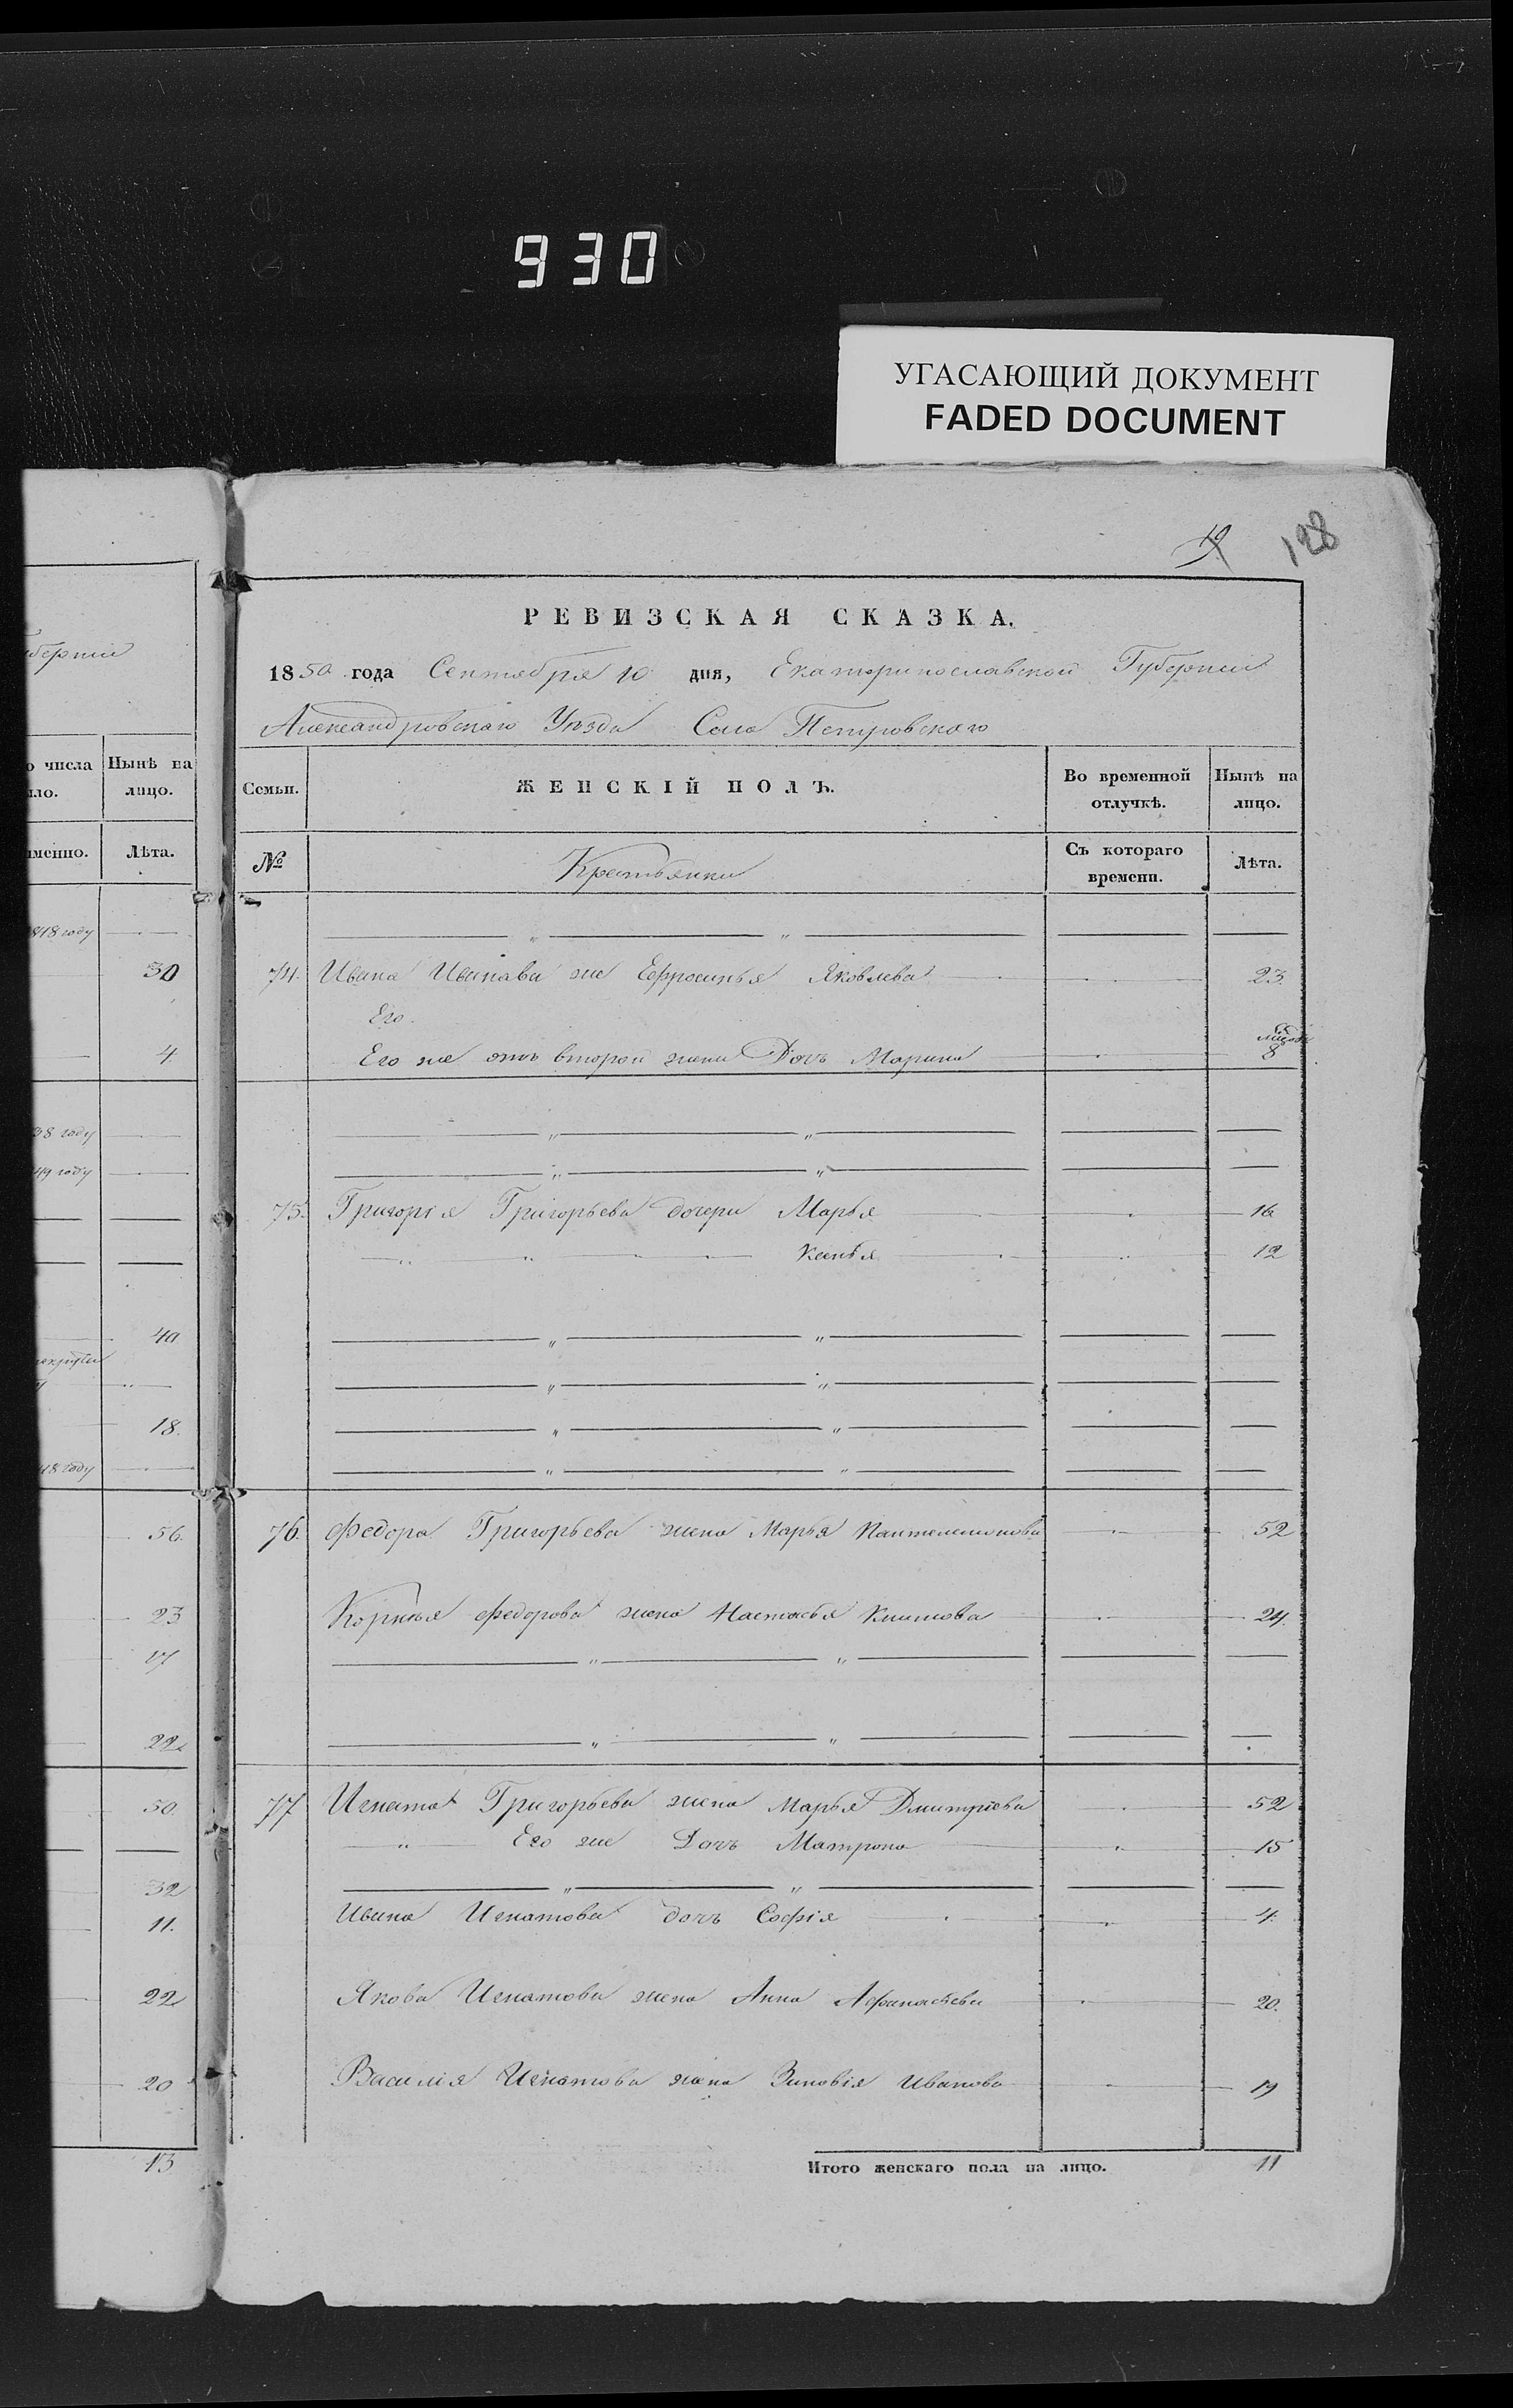 930
УГАСАЮЩИЙ ДОКУМЕНТ
FADED DOCUMENT
128
РЕВИЗСКАЯ СКАЗКА.
1850 года Сентября 10 дня, Екатеринославской Губернии
Александровскаго Уѣзда Села Петровскаго
Семьи. ЖЕНСКІЙ ПОЛЪ. Во временной отлучкѣ. Нынѣ на лицо.
№ Крестьянки Съ котораго времени. Лѣта.
74. Ивана Иванова же Ефросинья Яковлева 23.
Его.
Его же отъ второй жены Дочь Марина 8
75. Григорія Григорьева дочери Марья 16
Ксенья 12
76. Федора Григорьева жена Марья Пантелемонова 52
Корнья Федорова жена Настасья Климова 24.
77 Игната Григорьева жена Марья Дмитріева 52
Его же Дочь Матрона 15
Ивана Игнатова дочь Софія 4.
Якова Игнатова жена Анна Афанасьева 20.
Василія Игнатова жена Зиновія Иванова 19
Итого женскаго пола на лицо. 11
губерніи
числа Нынѣ на
ло. лицо.
именно. Лѣта.
1818 году
30
4
38 году
49 году
40
18.
48 году
56.
23
17
22
50.
32
11.
22
20
13